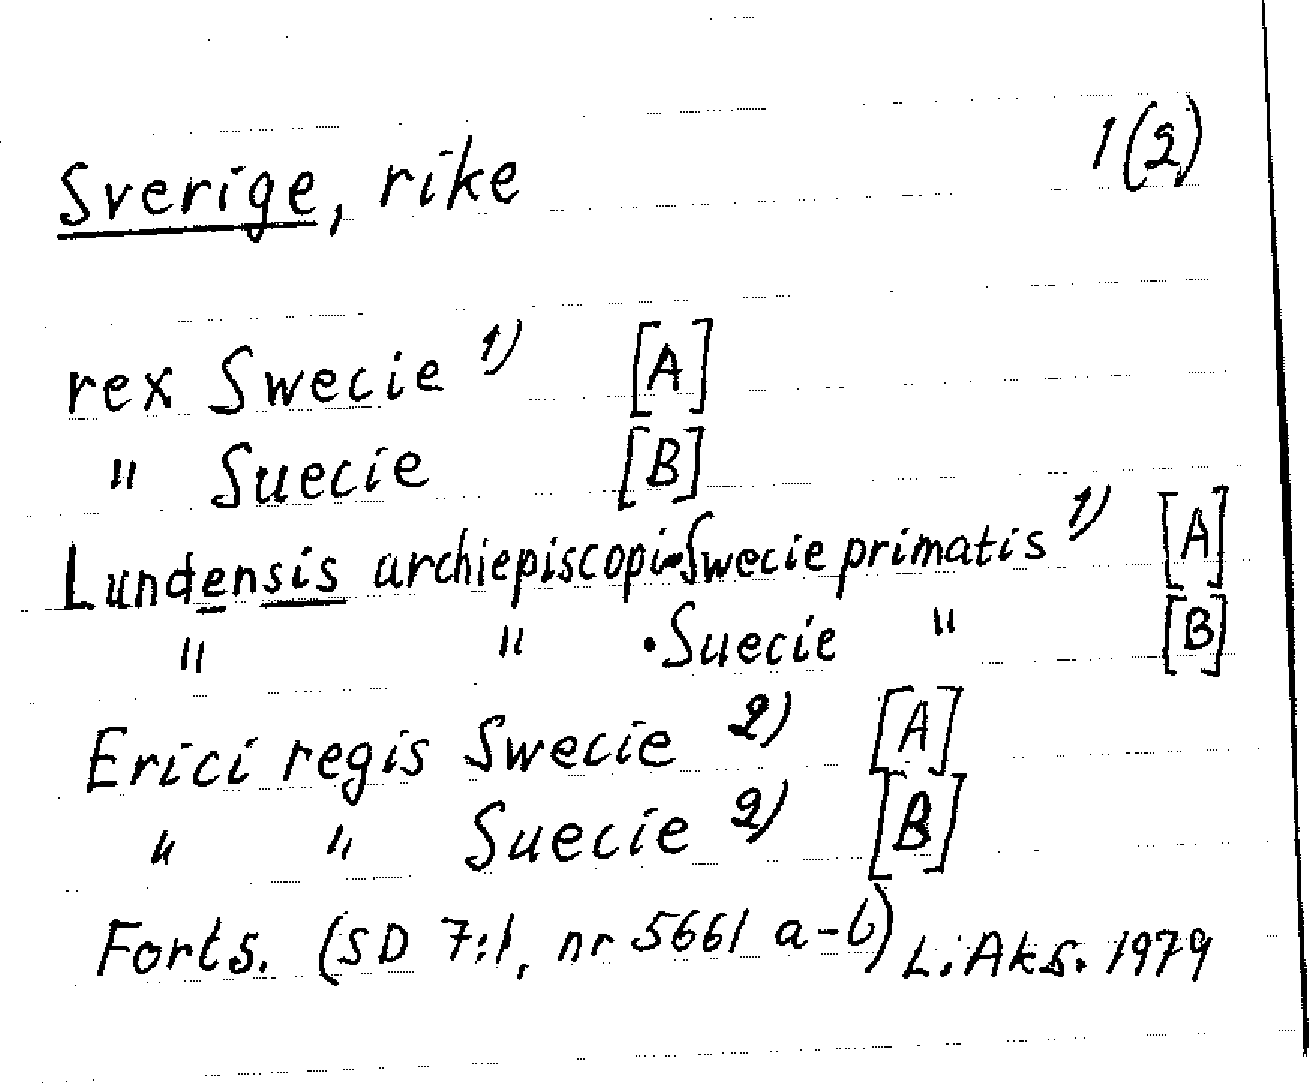 Sverige, rike 1(2)
rex Swecie 1) [A]
" Suecie [B]
Lundensis archiepiscopi·Swecie primatis 1) [A]
" " ·Suecie " [B]
Erici regis Swecie 2) [A]
" " Suecie 2) [B]
Forts. (SD 7:1, nr 5661 a-b) L. Aks. 1979